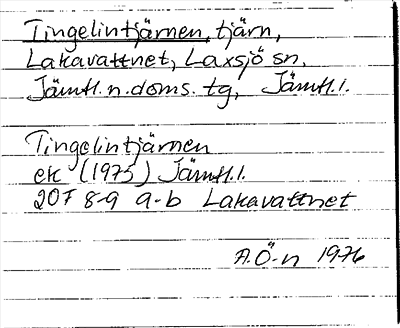 Tingelintjärnen, tjärn,
Lakavattnet, Laxsjö sn,
Jämtl. n. doms. tg, Jämtl. l.
Tingelintjärnen
ek (1975) Jämtl. l.
20F 8-9 a-b Lakavattnet
A.Ö-n 1976